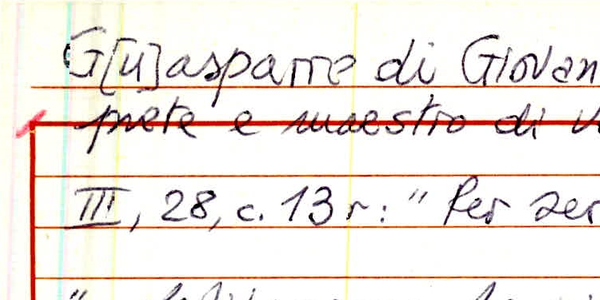 G[u]asparre di Giovan
prete e maestro di
III, 28, c. 13 r: " Per ser
"